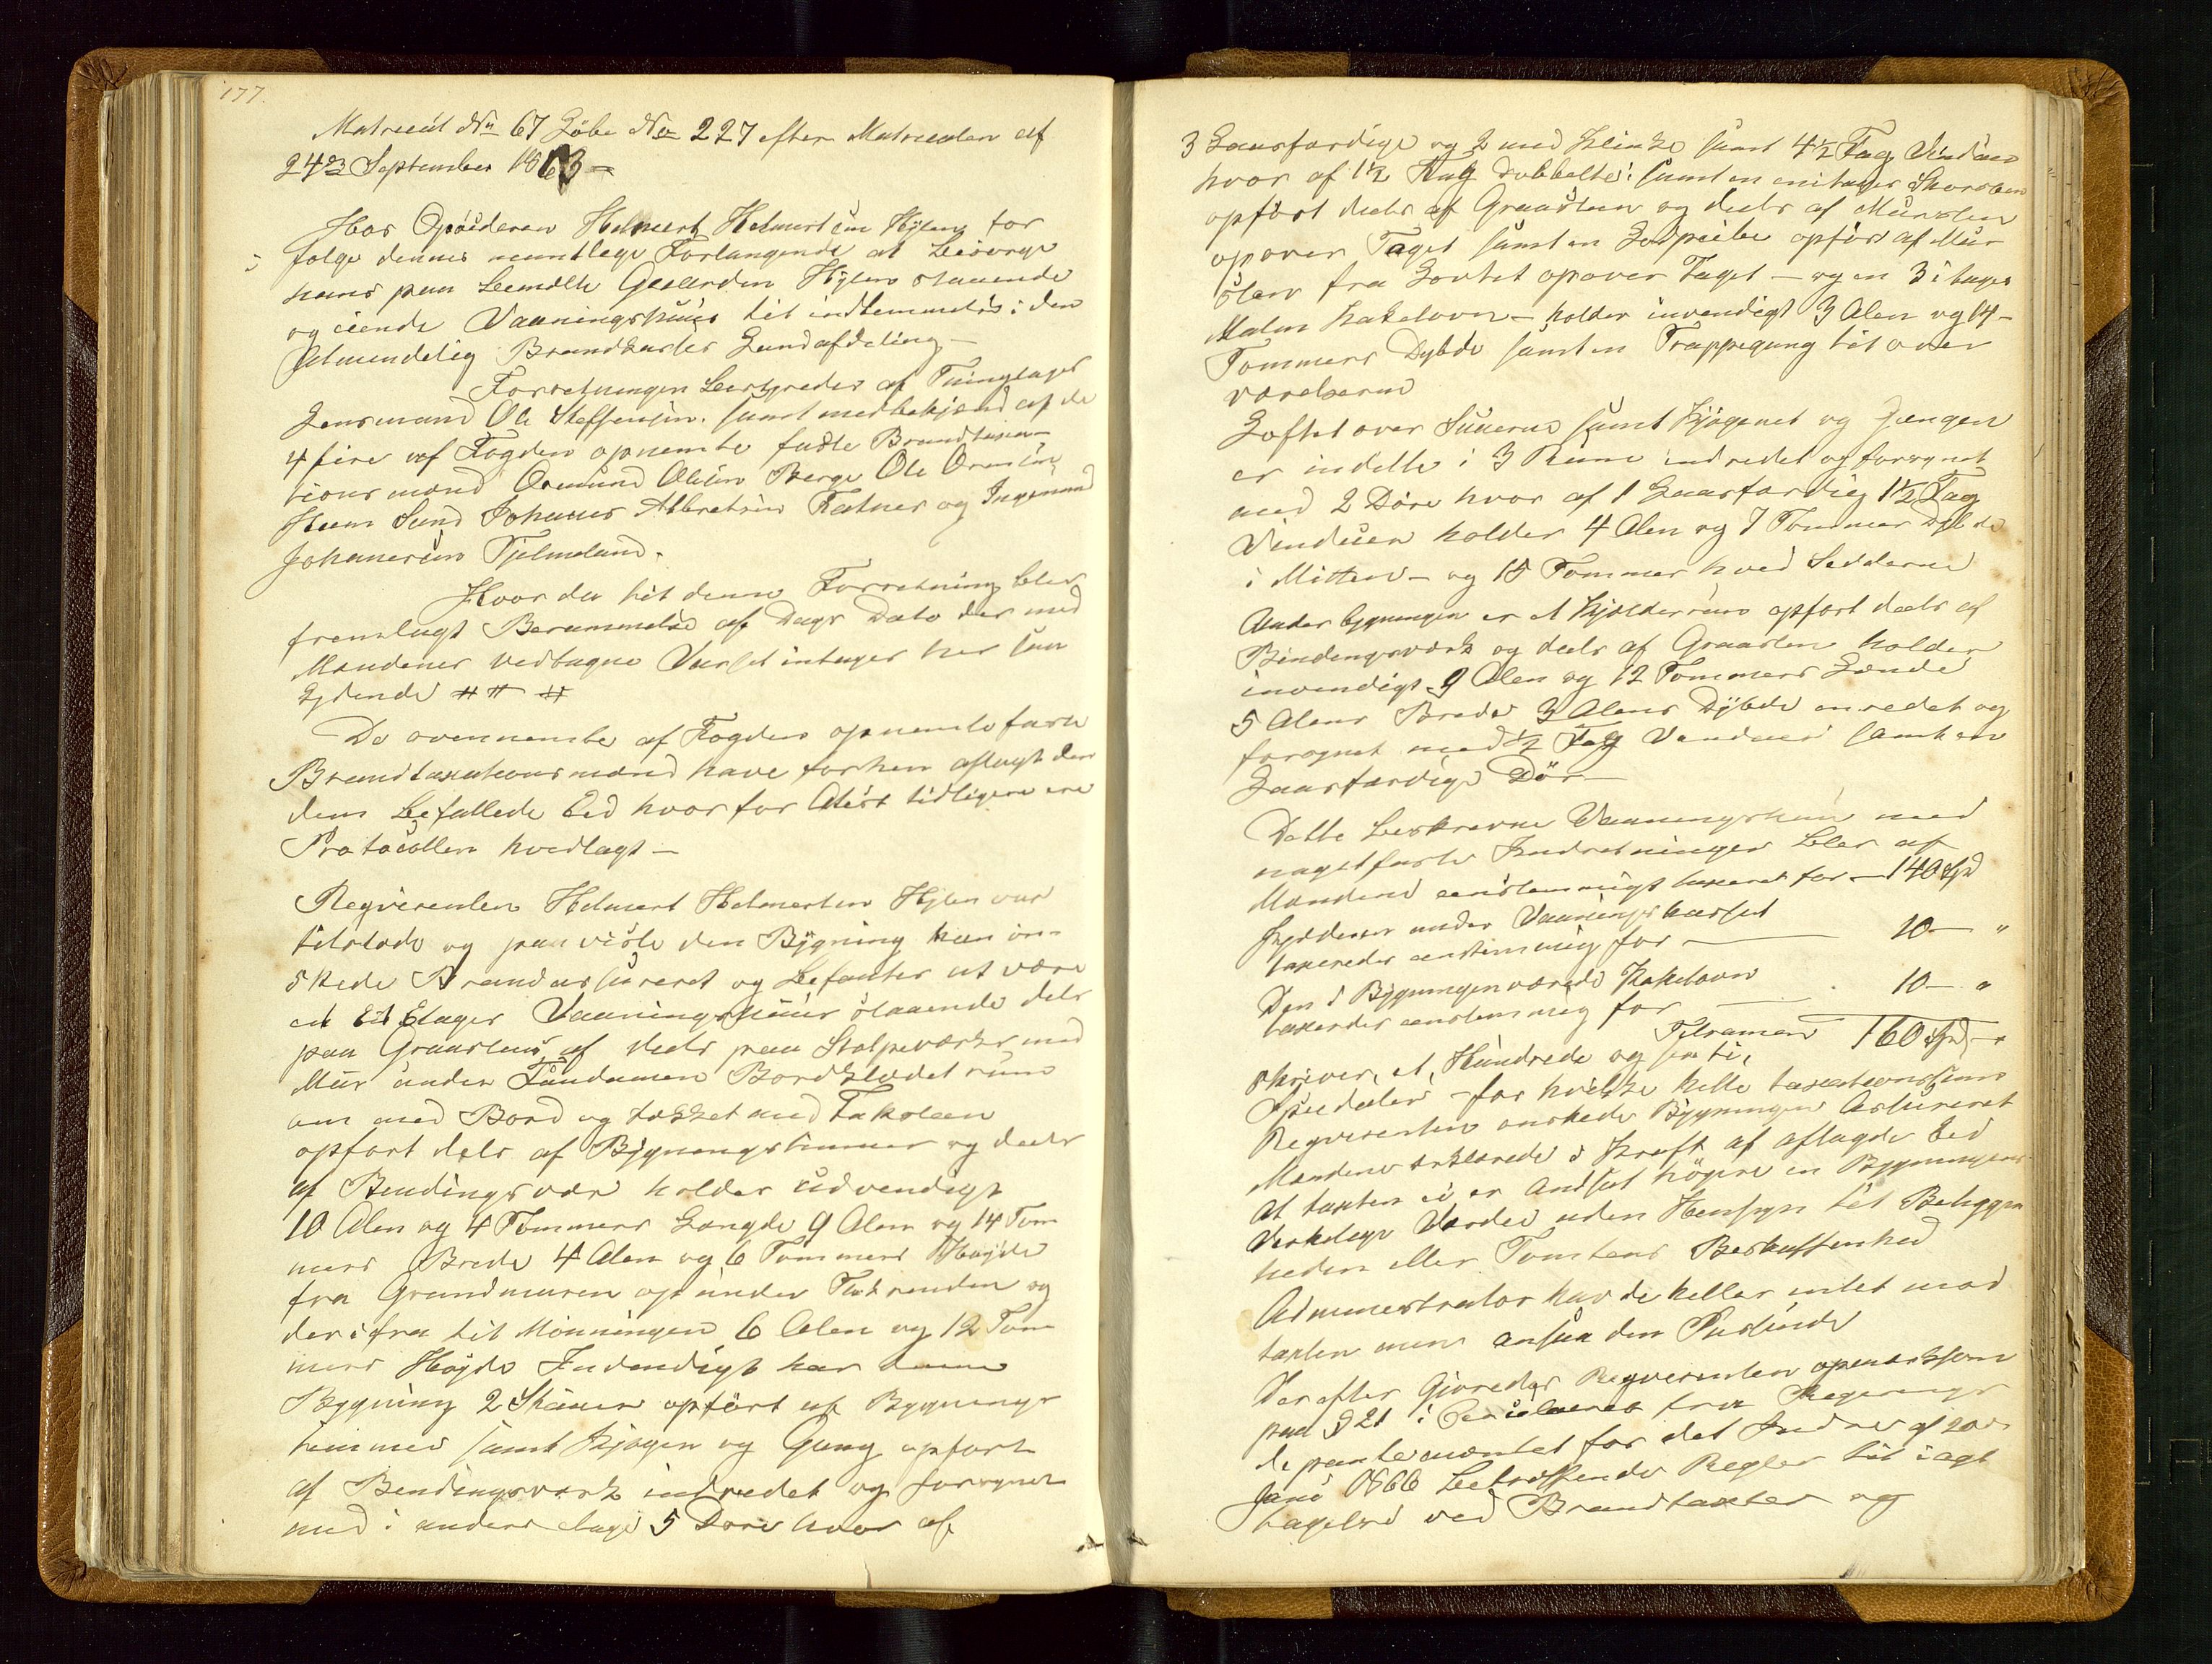 177.
Matrecul No 67 Løbe No 227 efter Matreculen af
24de September 1863 –
Hos Opsideren Helmert Helmertsen Hylen for
i følge dennes muntlege Forlangende at
hans paa Gaarden Hylen staaende
og eiende Vaaningshuus til indlemmelse i den
Almindelig Brandkasses Landafdeling –
Forretningen bestyredes af Tinglagets
Lensmand Ole Steffensen. samt med af de
4 fire af Fogden opnemte faste Brandtaxa-
tions mænd Aamund Olsen Berge Ole
Sand Johanes Albretsen og Ingemund
Johanesen Tjelmeland.
Hvor da til denne Forretning blev
fremlagt Berammelse af Dags Dato der med
Mændenes vedtagne Varsel intages her saa
Lydende # # #
De ovennemte af Fogden opnemte faste
Brandtaxations mænd have forhen aflagt den
dem befallede Eid hvorfor Atest tidligere ere
Protocollen hvedlagt –
Reqvirenten Helmert Helmertsen Hylen var
tilstede og paa viste den Bygning han øn-
skede Brandassureret og befantes at være
et Et Etages Vaaningshuus staaende dels
paa Graasteens af deels paa Stolpeværks med
Mur under Fundamen Bordklædet rund
om med Bord og tækket med Taksteen
opført dels af Bygningstømmer og deels
af Bendingsvær holder udvendigt
10 Alen og 4 Tommers Længde 9 Alen og 14 Tom
mers Brede 4 Alen og 6 Tommers Høyde
fra Grundmuren op under Takrenden og
der i fra til Mønningen 6 Alen og 12 Tom
mers Høyde Indvendigt har denne
Bygning 2 Stuuer opført af Bygnings
tømmer samt Kjøgen og Gang opført
af Bendingsværk indredet og forsynet
med i anders etage 5 Døre hvor af
3 Laasfærdige og 2 med Klinke samt 4½ Fag Vinduer
hvor af 1½ Fag Dobbelte i samt en enetages Skorsten
opført deels af Graasten og deels af Mursten
opover Taget samt en Lodpiibe opført af Mur
sten fra Lovtet opover Taget – og en 3 etages
Malm Kakelovn – holder invendigt 3 Alen og 14 –
Tommers Dybde samt en Trappegang til over
værelserne
Loftet over Stuerne samt Kjøgenet og Gangen
er indelte i 3 Rum indredet og forsynet
med 2 Døre hvor af 1 Laasfærdig 1½ Fag
Vinduer holder 4 Alen og 7 Tommer Dybde
i Mitten – og 15 Tommer hved Sidderne
Under bygningen er et Kjælderrum opført deels af
Bindingsværk og deels af Graasten holder
invendigt 9 Alen og 12 Tommers Længde
5 Alens Brede 3 Alens Dybde enredet og
forsynet med ½ Fag Venduer samt en
Laasfærdige Dør –
Dette beskrevne Vaaningshuus med
nagelfaste Indretninger blev af
Mændene eenstemmigt taxeret for – 140 Spd
Kjelderen under Vaaningshusset
taxeredes eenstemmig for – 10 – "
Den i Bygningen værede Kakelovn
taxerdes eenstemmig for – 10 – "
Tilsamen 160 Spd –
skriver, et, Hundrede og sex ti,
Speciedaler – for hvilke helle taxationssum
Reqvirenten ønskede Bygningen Assureret
Mændene erklærede i Kraft af aflagde Eid
At taxten ei er Andsat høgere en Bygningens
Verkelege Værdie uden Hensyn til Beliggen
heden eller Tomtens Beskaffenhed
Administrator havde heller intet mod
taxten men ansaa den Passende
Derefter Gjøredes Reqvirenten opmærksom
paa § 21 i Cerculæret fra Regerings
departemæntet for det Indre af 20de
Juni 1866 betræffende Regler til iagt
tagelse ved Brandtaxter og